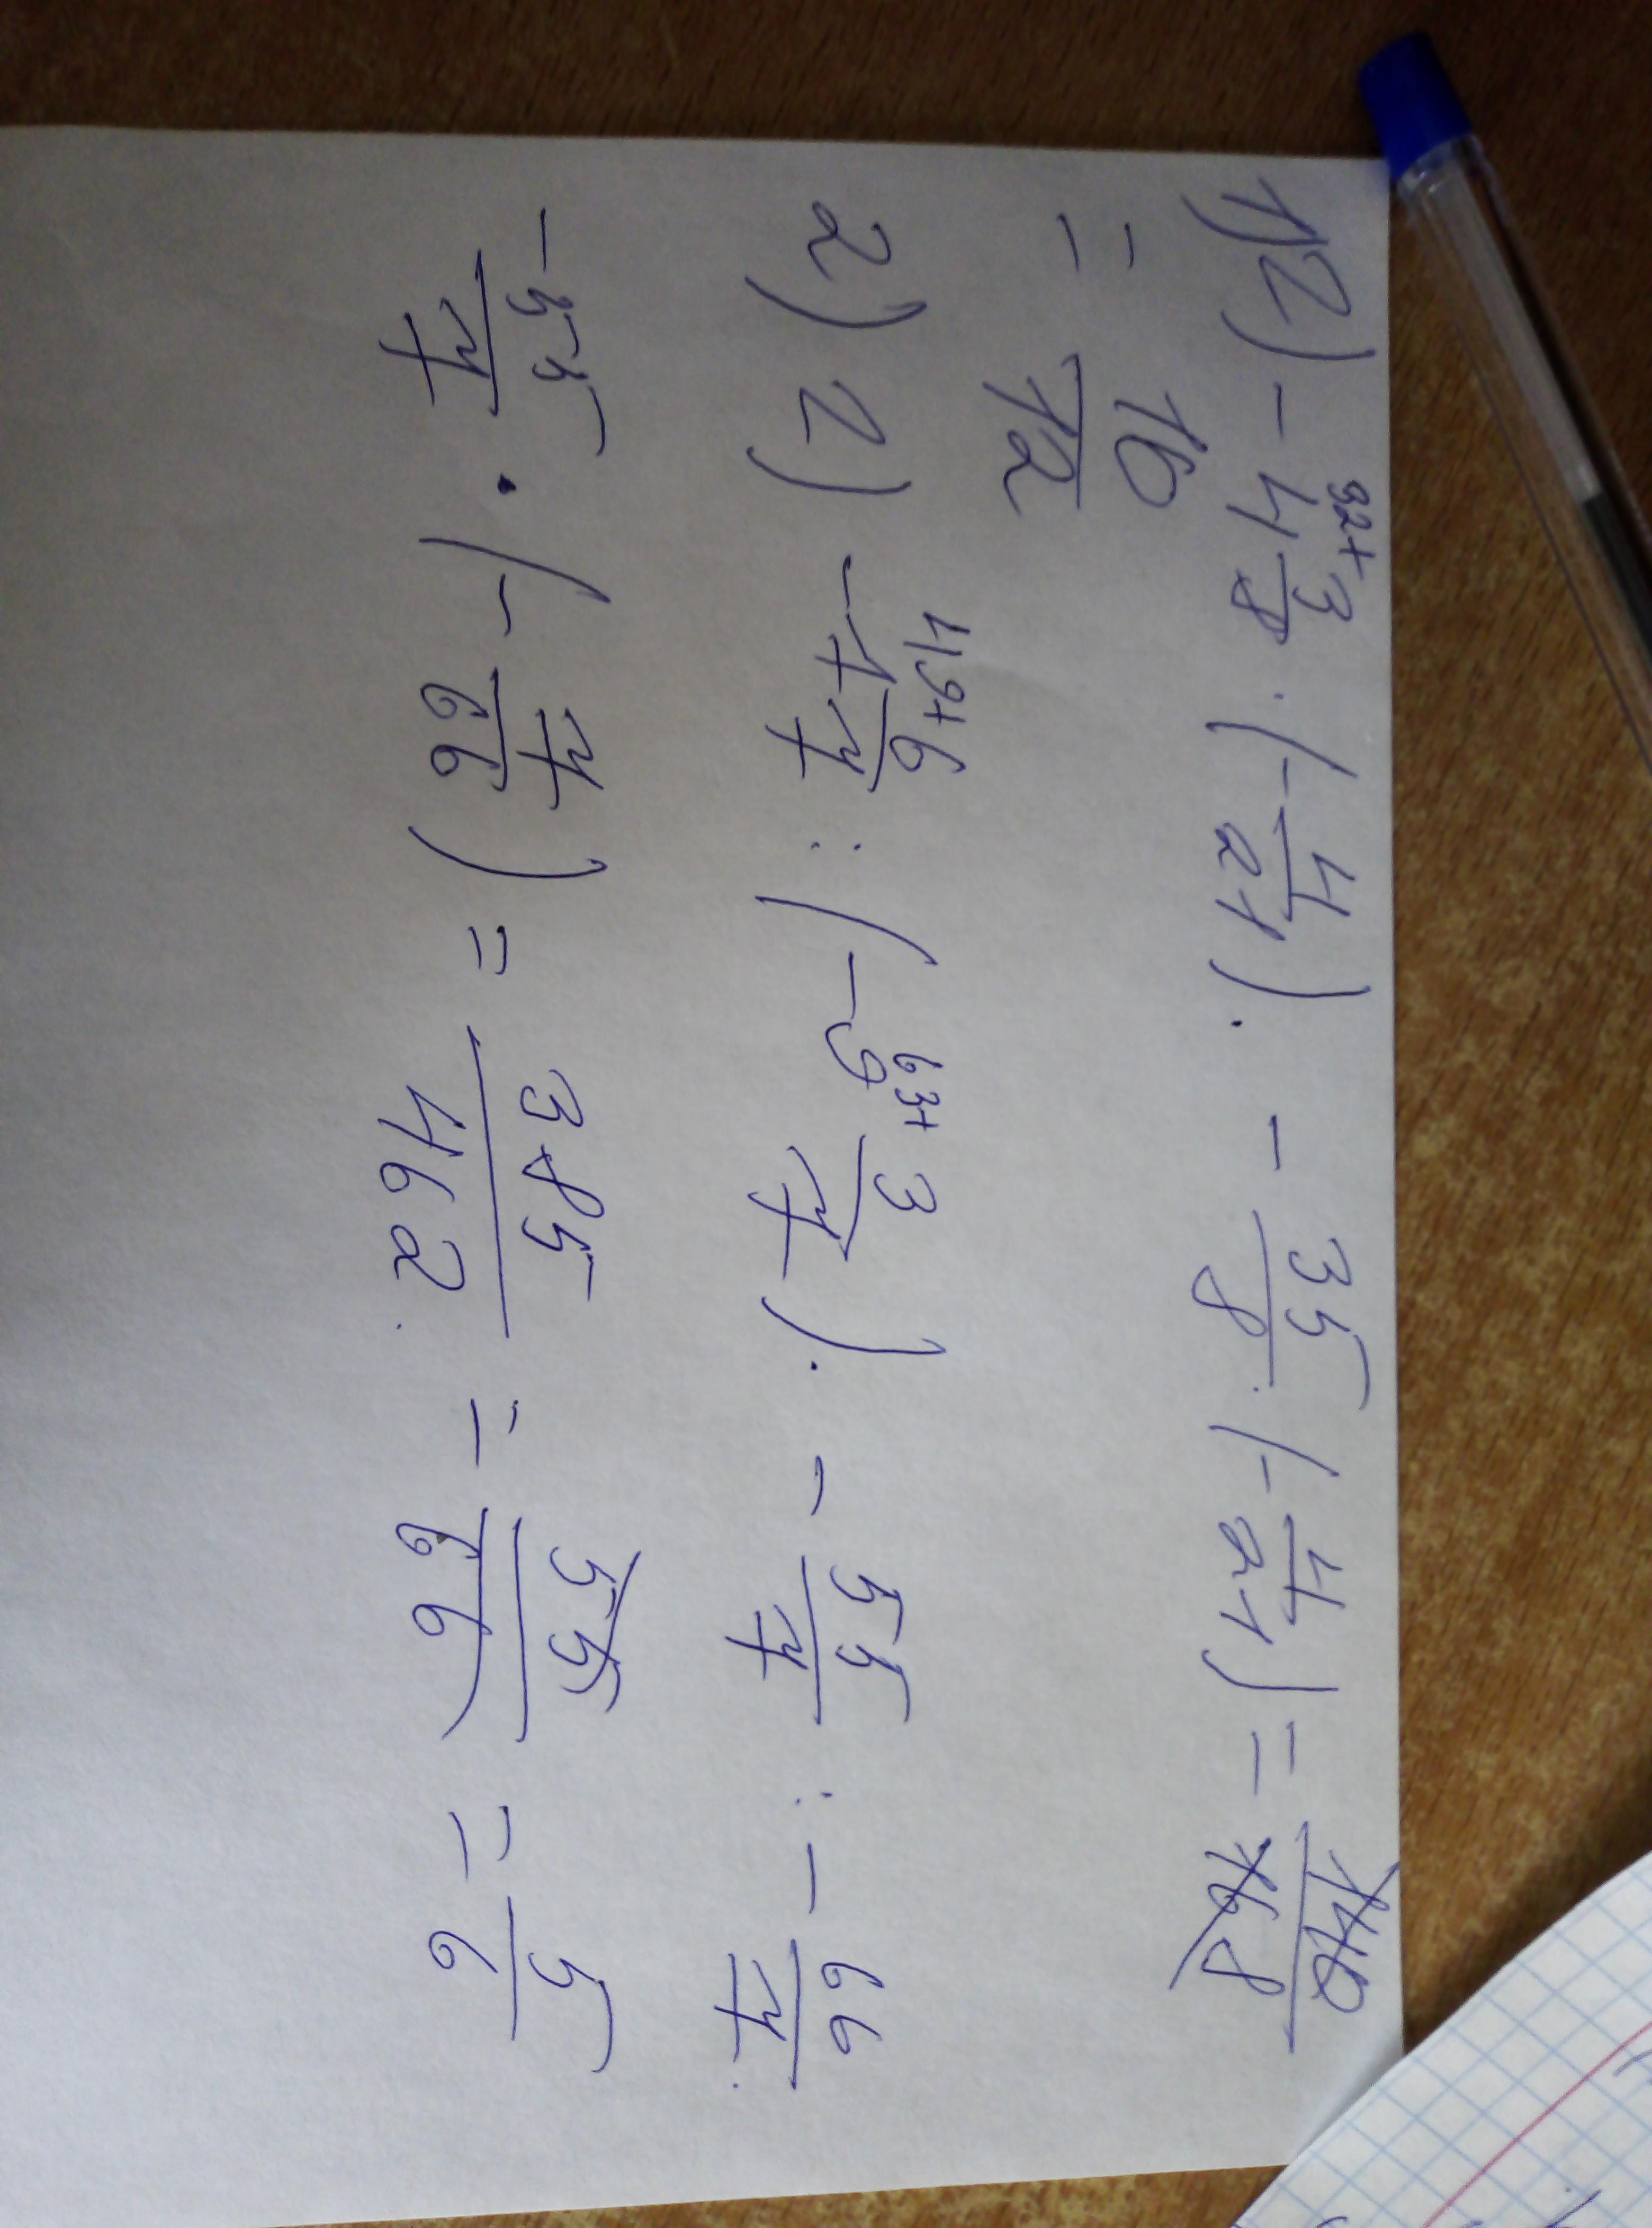 1) 2) - 4 32+3/8 · (- 4/21). - 35/8 · (- 4/21) = 140/168
= 10/12
2) 2) - 7 49+6/7 : (- 9 63+3/7). - 55/7 : - 66/7.
- 55/7 · (- 7/66) = 385/462. = 55/66 = 5/6